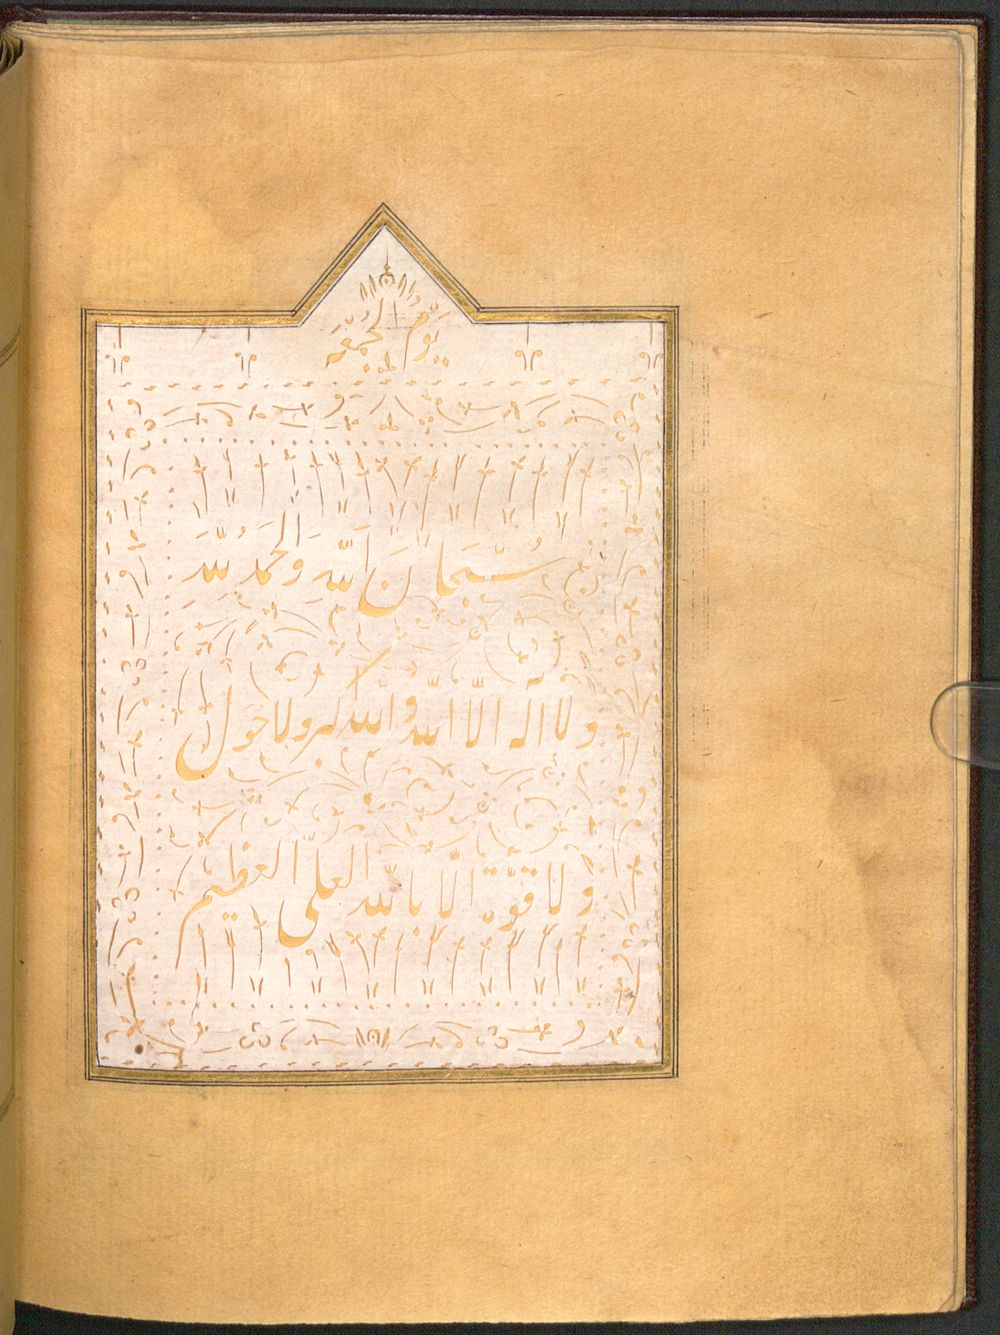 يوم الجمعة
سُبحانَ اللّه والحمدُ للّه
ولا اله الّا اللّه واللّه اكبر ولا حول
ولا قوّة الّا باللّه العلىّ العظيم